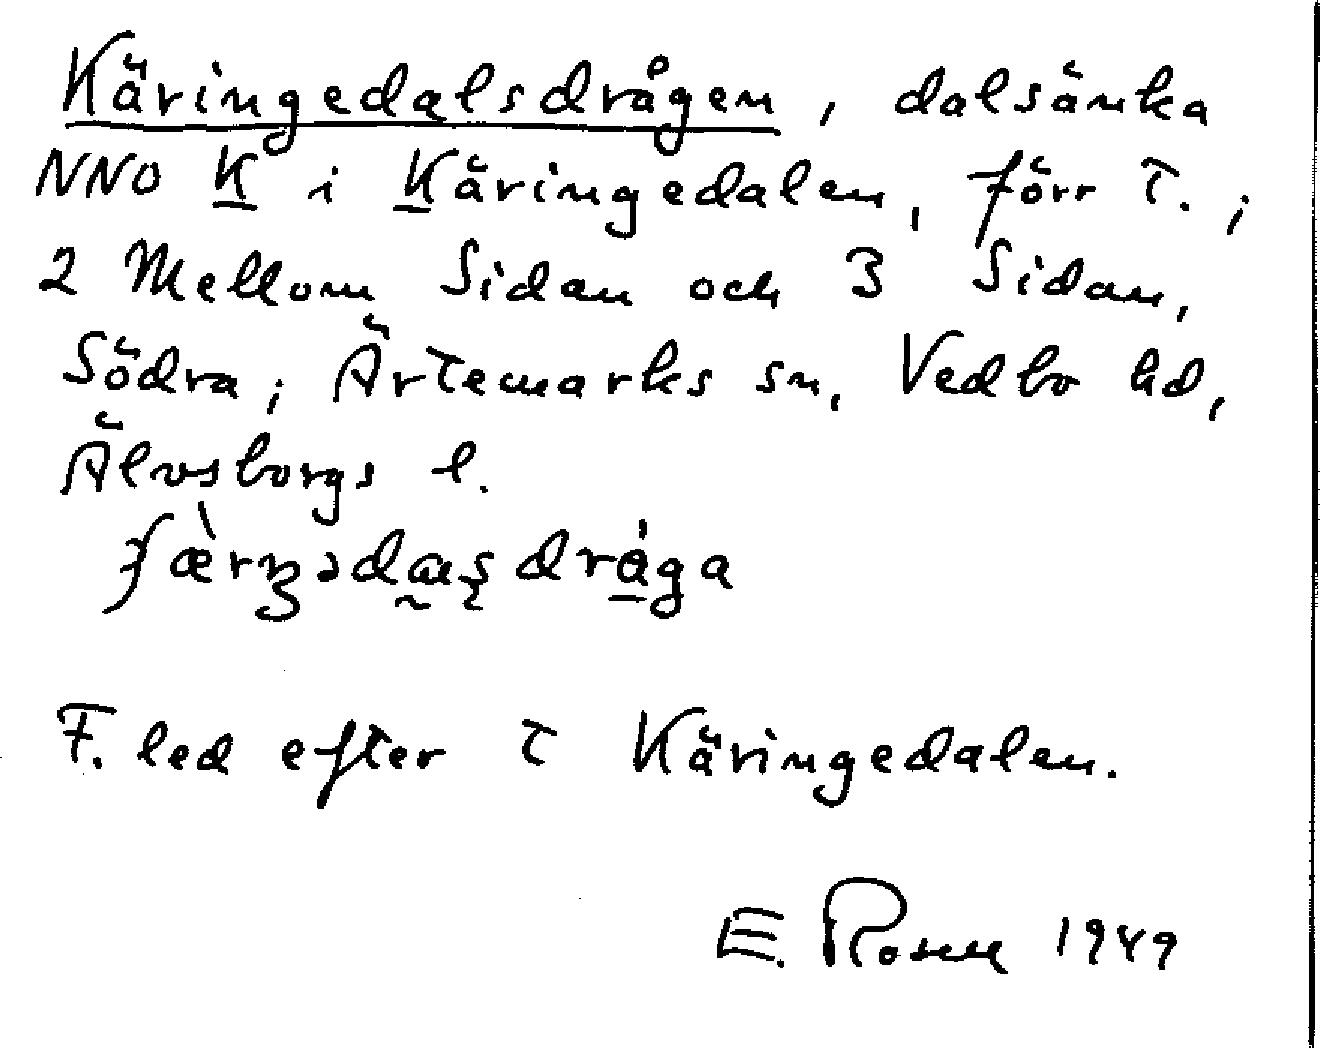 Käringedalsdrågen, dalsänka
NNO K i Käringedalen, förr T. i
2 Mellom Sidan och 3 Sidan,
Södra; Ärtemarks sn, Vedbo hd,
Älvsborgs l.
F. led efter T Käringedalen.
E. 1949